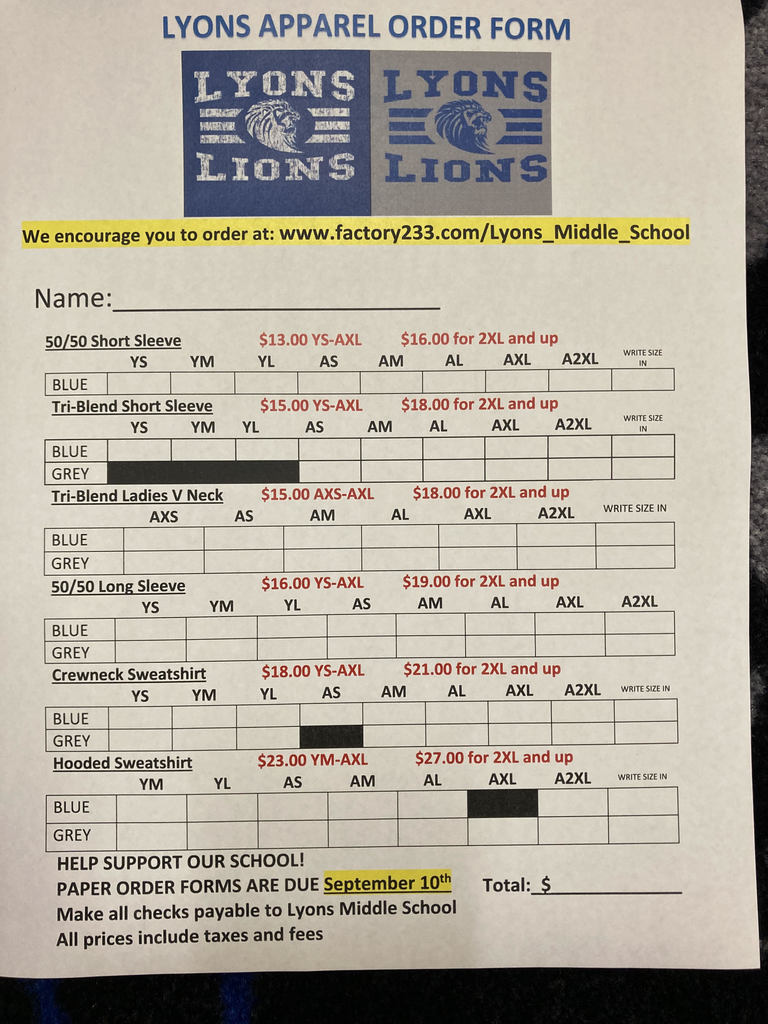 LYONS APPAREL ORDER FORM
LYONS LYONS
LIONS LIONS
We encourage you to order at: www.factory233.com/Lyons_Middle_School
Name:
50/50 Short Sleeve $13.00 YS-AXL $16.00 for 2XL and up
YS YM YL AS AM AL AXL A2XL WRITE SIZE IN
BLUE
Tri-Blend Short Sleeve $15.00 YS-AXL $18.00 for 2XL and up
YS YM YL AS AM AL AXL A2XL WRITE SIZE IN
BLUE
GREY
Tri-Blend Ladies V Neck $15.00 AXS-AXL $18.00 for 2XL and up
AXS AS AM AL AXL A2XL WRITE SIZE IN
BLUE
GREY
50/50 Long Sleeve $16.00 YS-AXL $19.00 for 2XL and up
YS YM YL AS AM AL AXL A2XL
BLUE
GREY
Crewneck Sweatshirt $18.00 YS-AXL $21.00 for 2XL and up
YS YM YL AS AM AL AXL A2XL WRITE SIZE IN
BLUE
GREY
Hooded Sweatshirt $23.00 YM-AXL $27.00 for 2XL and up
YM YL AS AM AL AXL A2XL WRITE SIZE IN
BLUE
GREY
HELP SUPPORT OUR SCHOOL!
PAPER ORDER FORMS ARE DUE September 10th Total: $
Make all checks payable to Lyons Middle School
All prices include taxes and fees